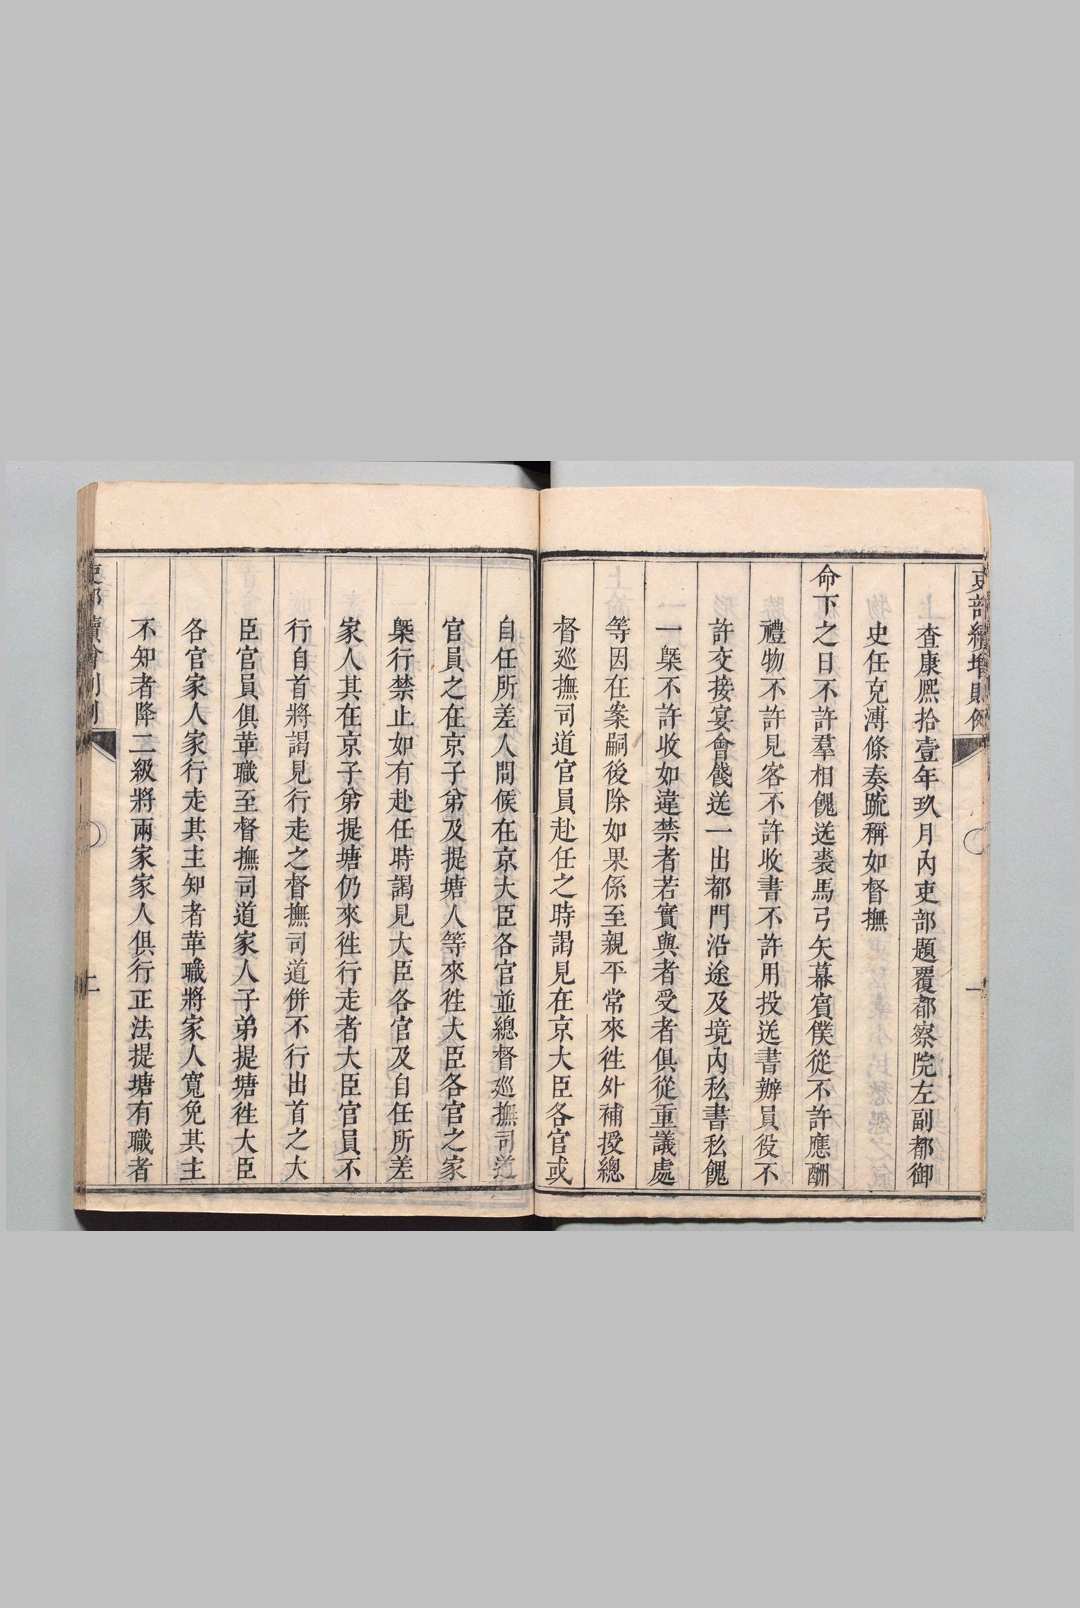 吏部續增則例
查康熙拾壹年玖月內吏部題覆都察院左副都御
史任克溥條奏疏稱如督撫
命下之日不許羣相餽送裘馬弓矢幕賓僕從不許應酬
禮物不許見客不許收書不許用投送書辦員役不
許交接宴會餞送一出都門沿途及境內私書私餽
一槩不許收如違禁者若實與者受者俱從重議處
等因在案嗣後除如果係至親平常來徃外補授總
督廵撫司道官員赴任之時謁見在京大臣各官或
自任所差人問候在京大臣各官並總督廵撫司道
官員之在京子弟及提塘人等來徃大臣各官之家
槩行禁止如有赴任時謁見大臣各官及自任所差
家人其在京子弟提塘仍來徃行走者大臣官員不
行自首將謁見行走之督撫司道併不行出首之大
臣官員俱革職至督撫司道家人子弟提塘徃大臣
各官家人家行走其主知者革職將家人寬免其主
不知者降二級將兩家家人俱行正法提塘有職者